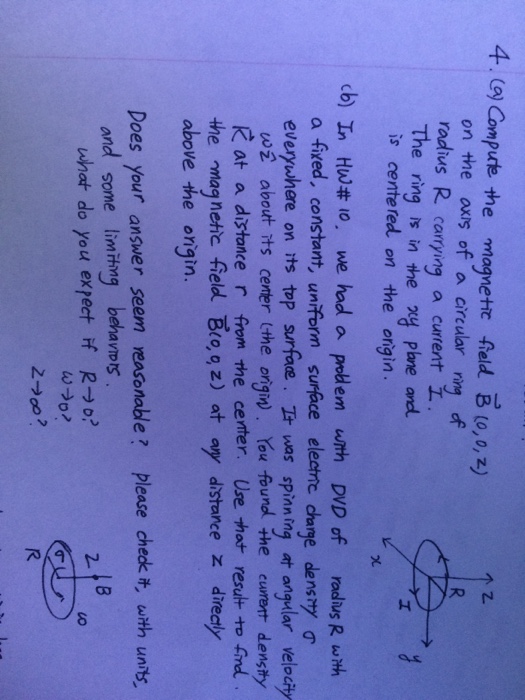 4. (a) Compute the magnetic field B⃗(0,0,z)
on the axis of a circular ring of
radius R carrying a current I.
The ring is in the xy plane and
is centered on the origin.
z
R
y
I
x
(b) In HW#10, we had a problem with DVD of radius R with
a fixed, constant, uniform surface electric charge density σ
everywhere on its top surface. It was spinning at angular velocity
ωẑ about its center (the origin). You found the current density
K⃗ at a distance r from the center. Use that result to find
the magnetic field B⃗(0,0,z) at any distance z directly
above the origin.
Does your answer seem reasonable? please check it, with units,
and some limiting behaviors.
what do you expect if R→0?
ω→0?
z→∞?
z
B
ω
σ
r
R